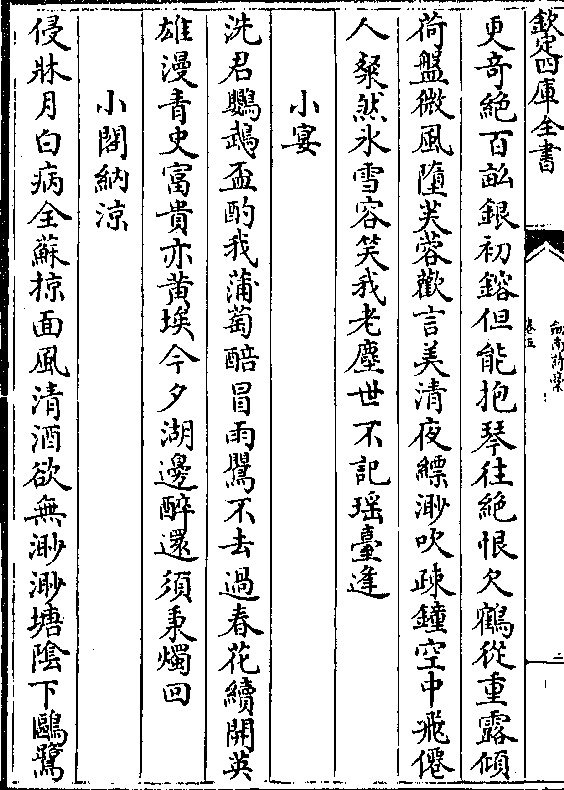 欽定四庫全書
卷五
劍南詩稾
更奇絶百畝銀初鎔但能抱琴往絶恨欠鶴從重露傾
荷盤微風墮芙蓉歡言美清夜縹渺吹疎鐘空中飛僊
人粲然氷雪容笑我老塵世不記瑶臺逢
小宴
洗君鸚鵡盃酌我蒲萄醅冒雨鸎不去過春花續開英
雄漫青史富貴亦黄埃今夕湖邊醉還須秉燭回
小閣納涼
侵牀月白病全蘇掠面風清酒欲無渺渺塘陰下鷗鷺